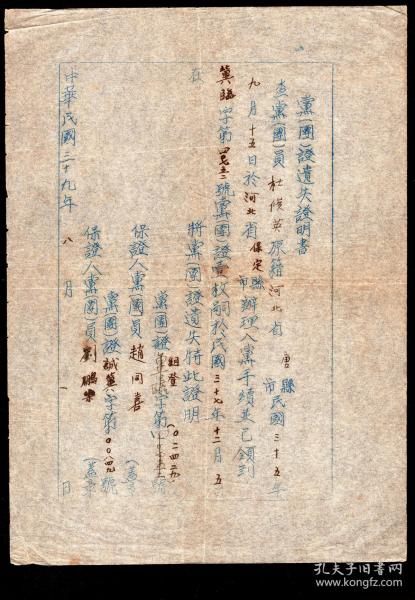 黨(團)證遺失證明書
查黨(團)員杜俊英原籍河北省唐縣市民國三十五年
九月十五日於河北省保定縣市辦理入黨手續並已領到
冀臨字第四七五二號黨(團)證壹枚嗣於民國三十七年十二月五
在
將黨(團)證遺失特此證明
黨(團)證組登字第(〇二四二九)號
保證人黨(團)員趙同善(蓋章
黨(團)證誠篤字第〇〇八四九號
保證人黨(團)員劉鵬樂(蓋章
中華民國三十九年八月一日
孔夫子旧书网
www.kongfz.com